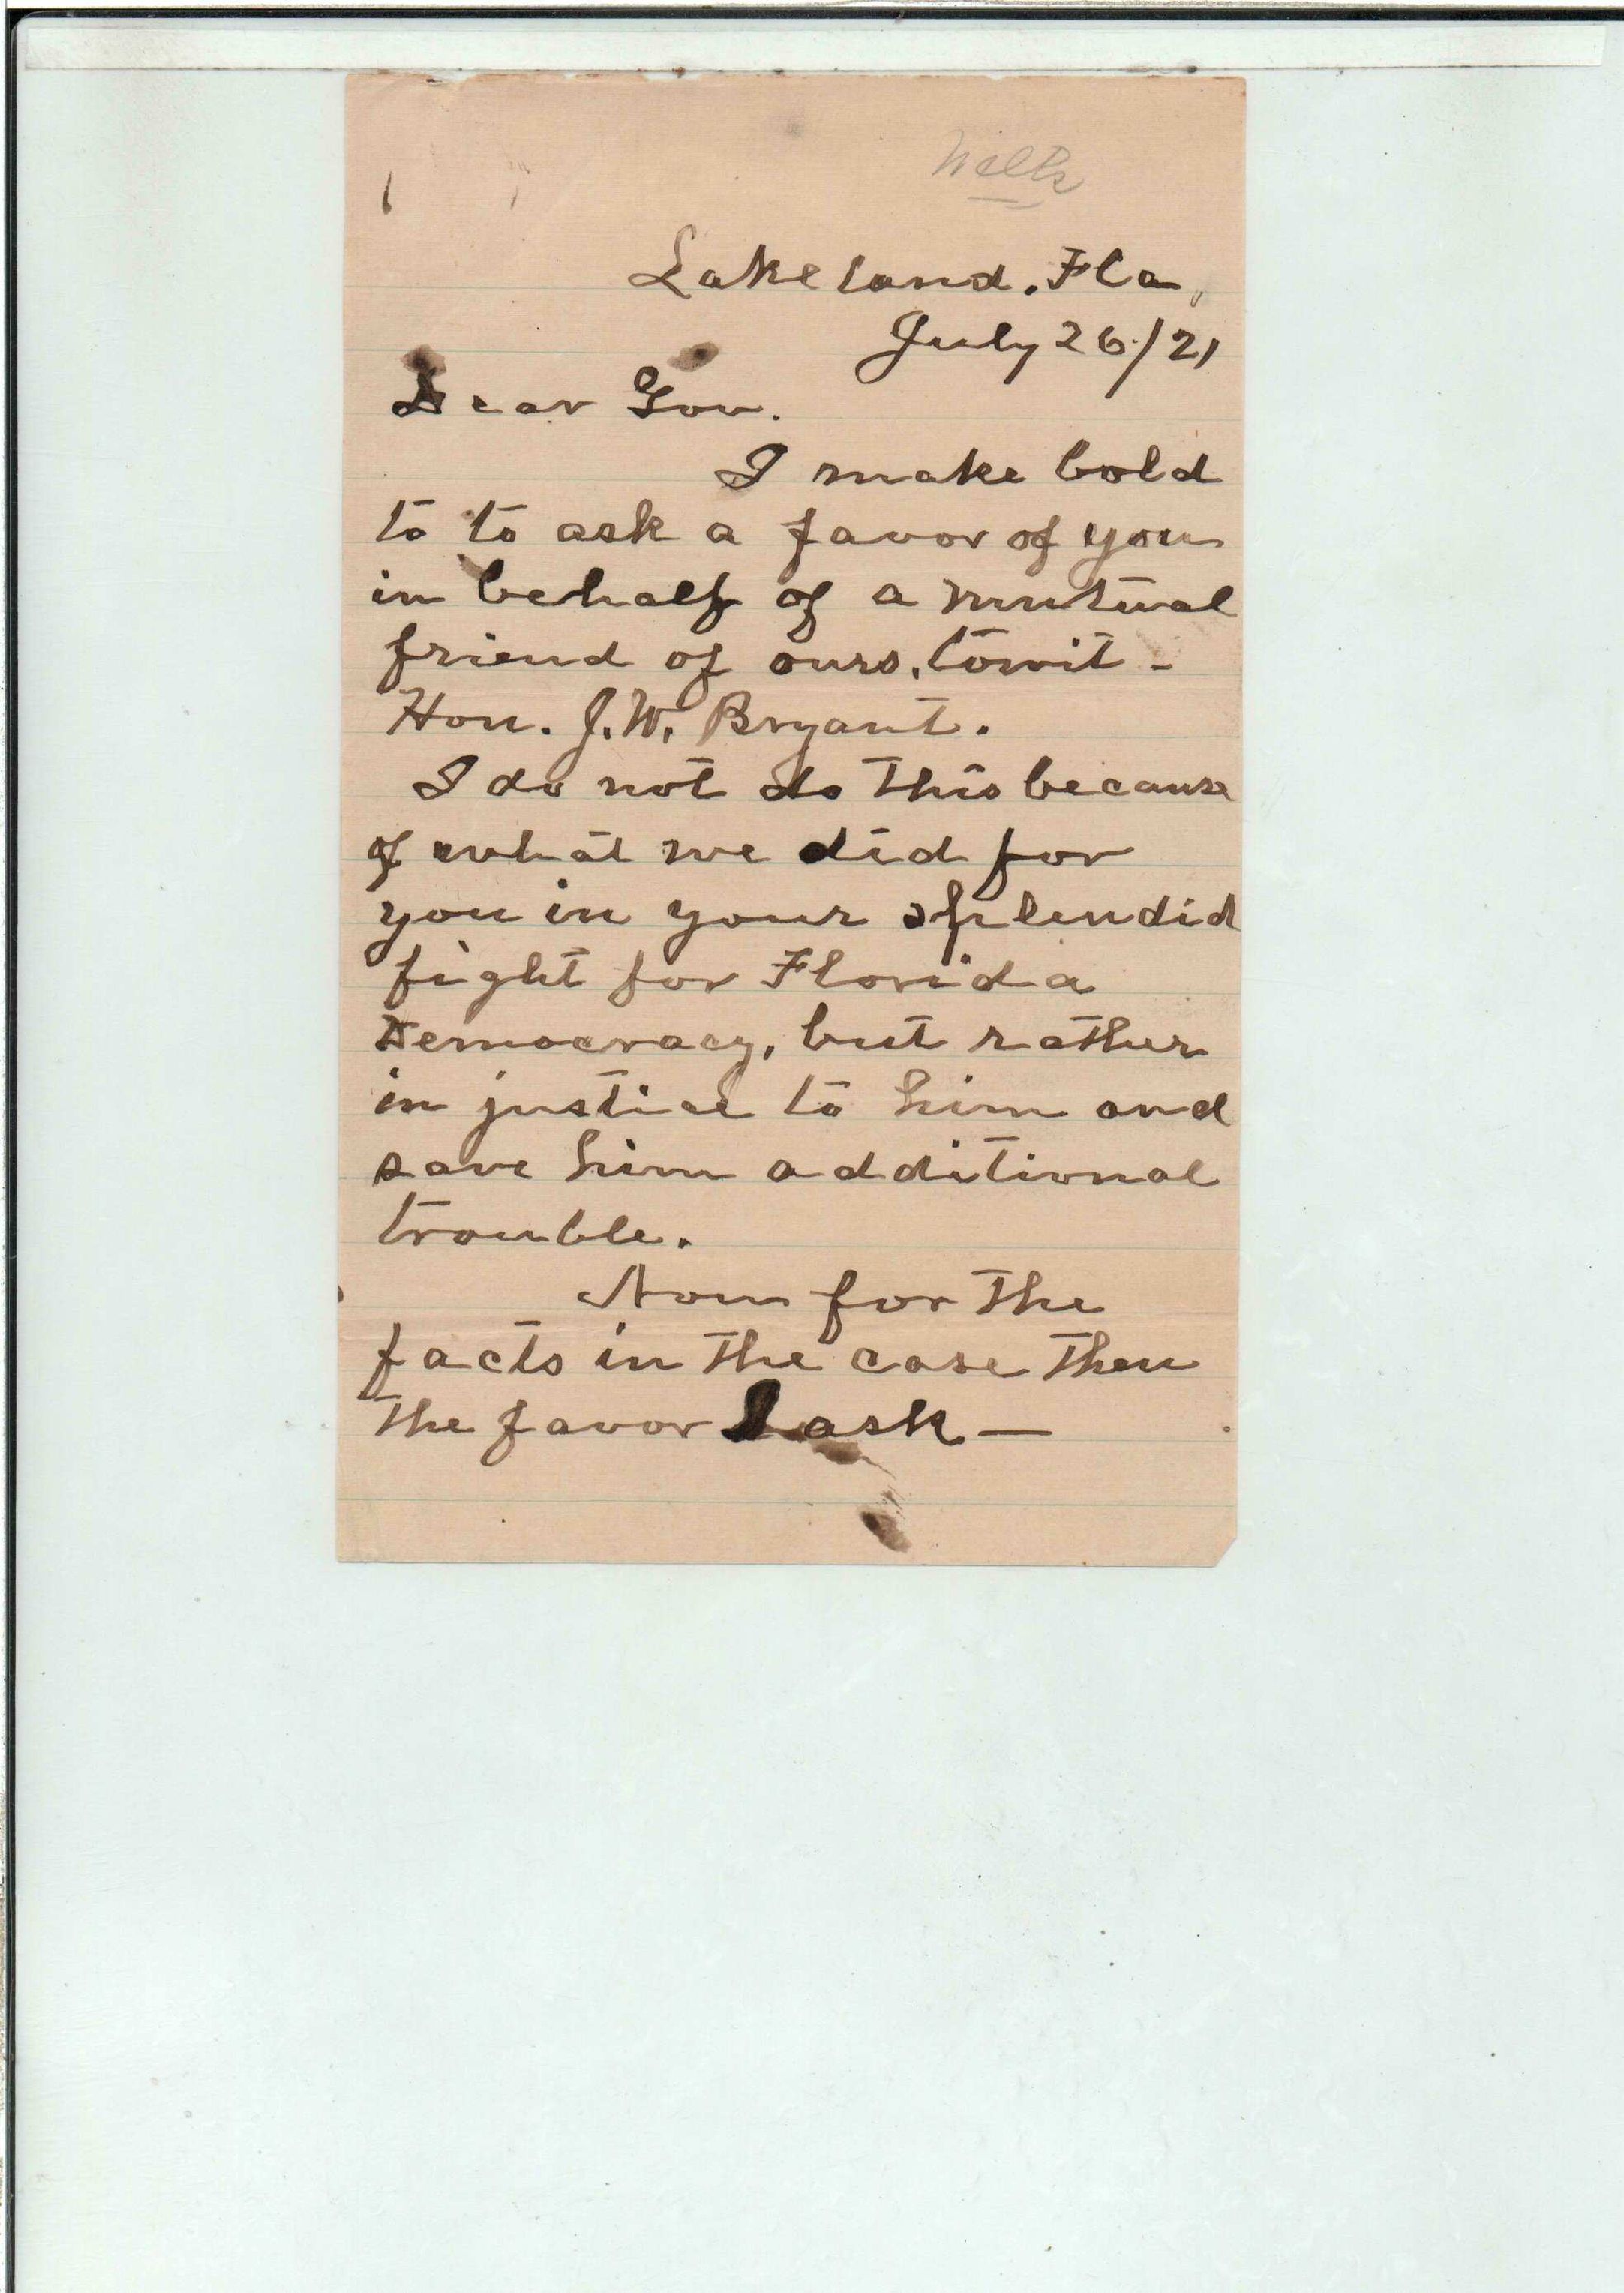 Wells
Lakeland. Fla,
July 26/21
Dear Gov.
I make bold
to to ask a favor of you
in behalf of a mutual
friend of ours, towit -
Hon. J. W. Bryant.
I do not do this because
of what we did for
you in your splendid
fight for Florida
Democracy, but rather
in justice to him and
save him additional
trouble.
Now for the
facts in the case then
the favor I ask —